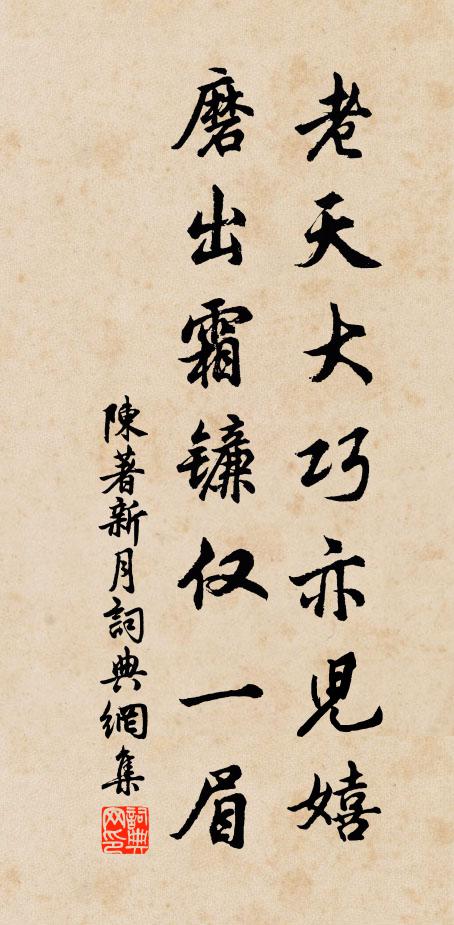 老天大巧亦兒嬉
磨出霜镰仅一眉
陳著新月詞典網集
詞典网印